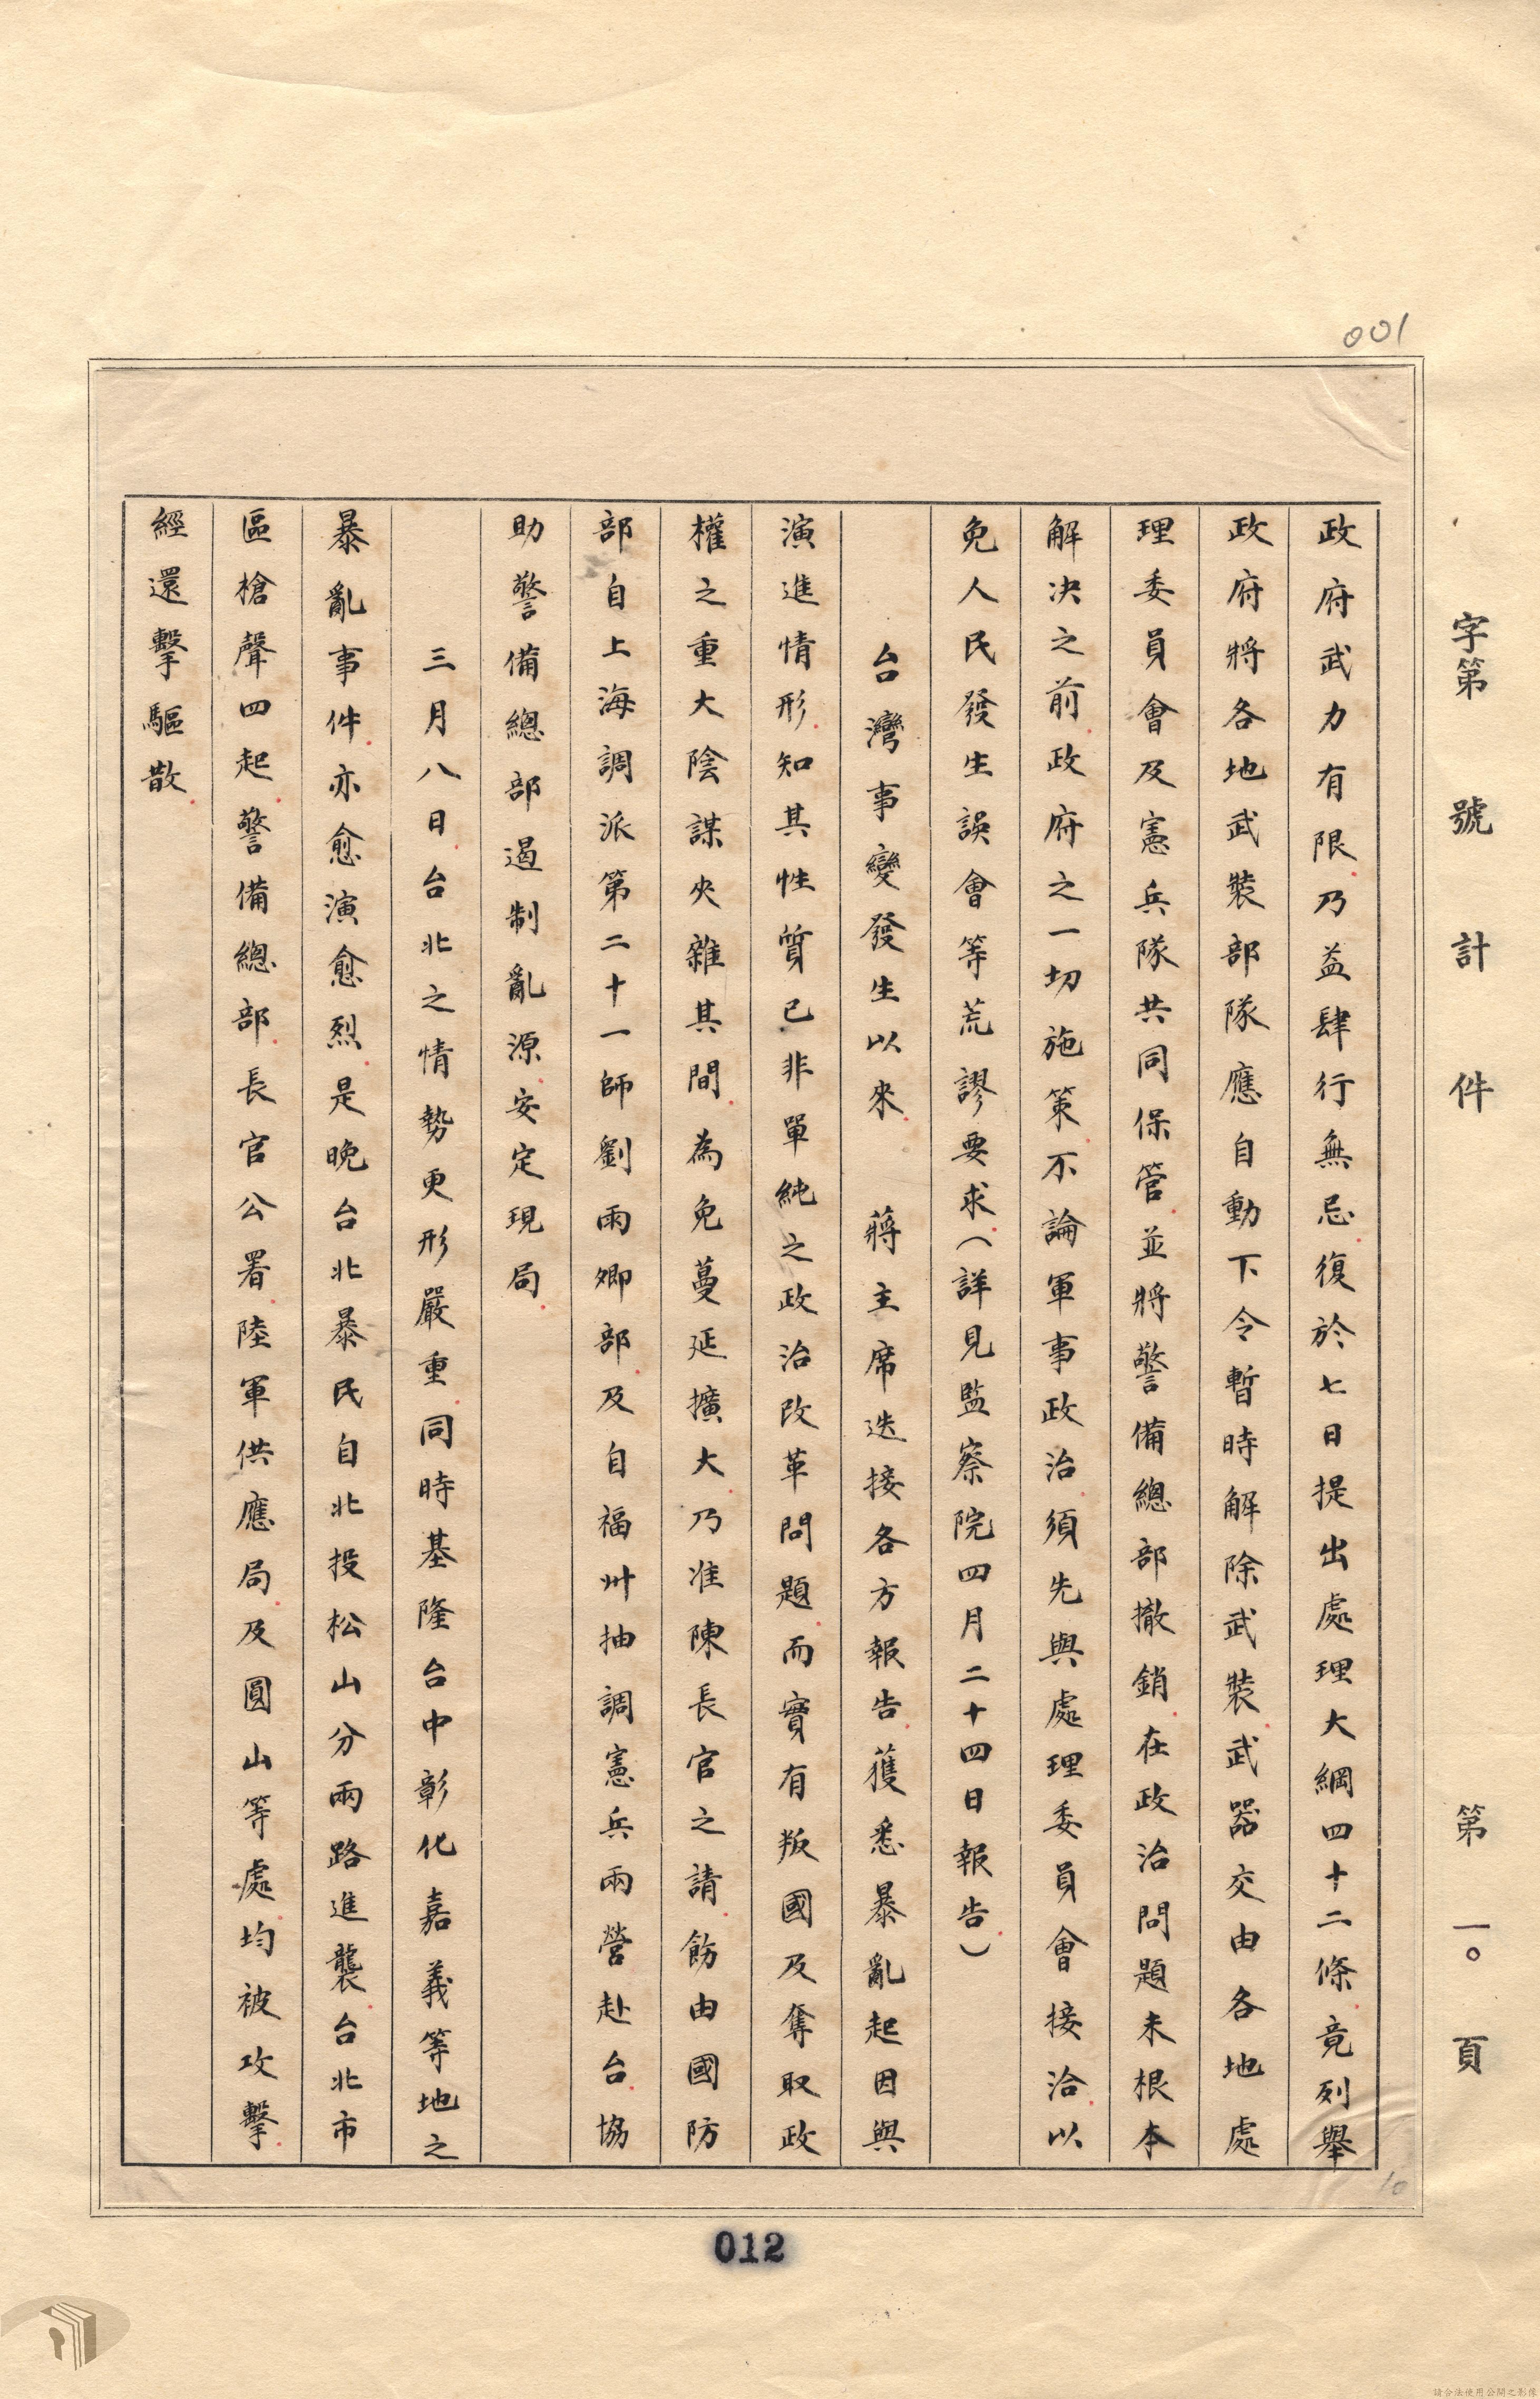 001
字第 號計件 第一〇頁
政府武力有限乃益肆行無忌復於七日提出處理大綱四十二條竟列舉
政府將各地武裝部隊應自動下令暫時解除武裝武器交由各地處
理委員會及憲兵隊共同保管並將警備總部撤銷在政治問題未根本
解決之前政府之一切施策不論軍事政治須先與處理委員會接洽以
免人民發生誤會等荒謬要求（詳見監察院四月二十四日報告）
台灣事變發生以來 蔣主席迭接各方報告獲悉暴亂起因與
演進情形知其性質已非單純之政治改革問題而實有叛國及奪取政
權之重大陰謀夾雜其間為免蔓延擴大乃准陳長官之請飭由國防
部自上海調派第二十一師劉雨卿部及自福州抽調憲兵兩營赴台協
助警備總部遏制亂源安定現局
三月八日台北之情勢更形嚴重同時基隆台中彰化嘉義等地之
暴亂事件亦愈演愈烈是晚台北暴民自北投松山分兩路進襲台北市
區槍聲四起警備總部長官公署陸軍供應局及圓山等處均被攻擊
經還擊驅散
10
012
請合法使用公開之影像